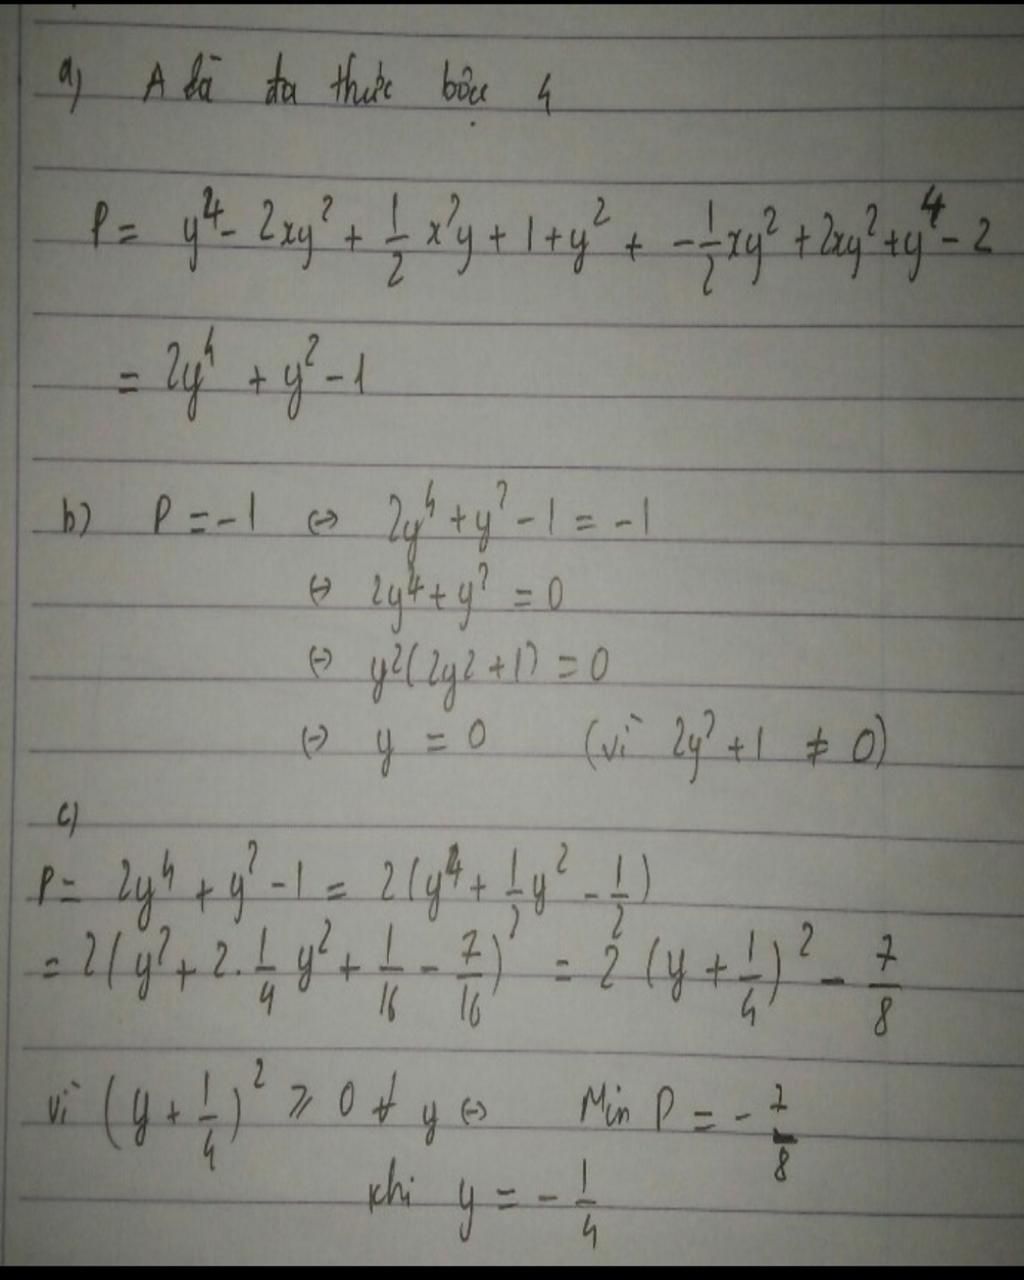 a) A là đa thức bậc 4
P = y⁴ - 2xy² + 1/2 x²y + 1 + y² + - 1/2 xy² + 2xy² + y⁴ - 2
= 2y⁴ + y² - 1
b) P = -1 ⇔ 2y⁴ + y² - 1 = -1
⇔ 2y⁴ + y² = 0
⇔ y²(2y2 + 1) = 0
⇔ y = 0 (vì 2y² + 1 ≠ 0)
c)
P = 2y⁴ + y² - 1 = 2(y⁴ + 1/2 y² - 1/2)
= 2(y² + 2. 1/4 y² + 1/16 - 7/16)² = 2 (y + 1/4)² - 7/8
vì (y + 1/4)² ⩾ 0 ∀ y ⇔ Min P = - 7/8
khi y = - 1/4